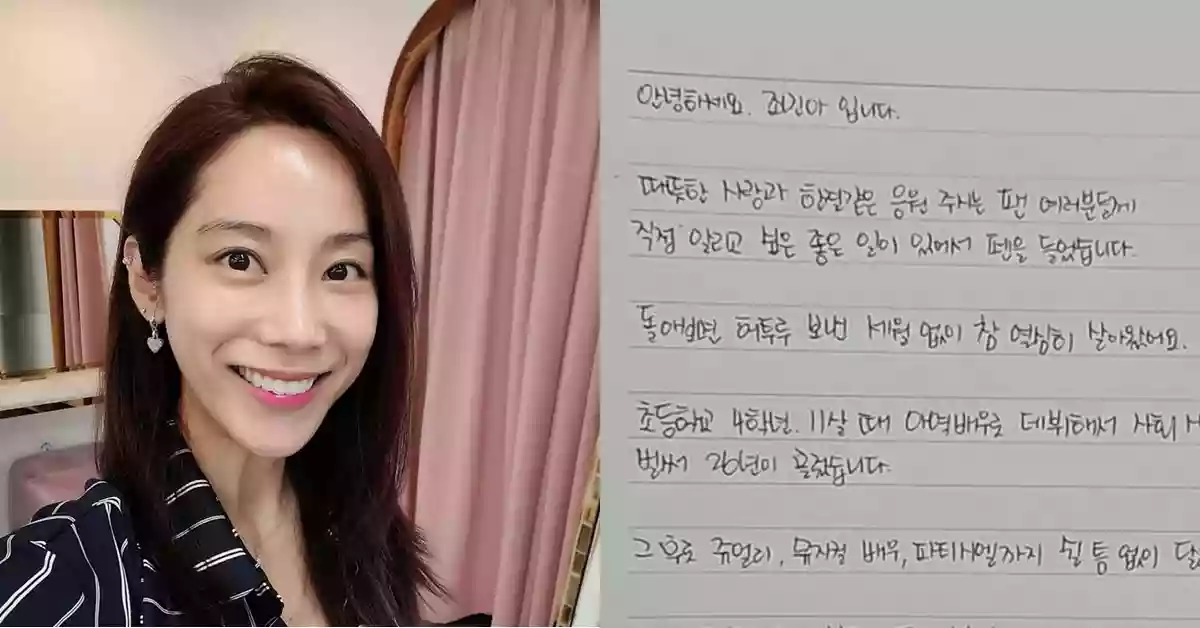 안녕하세요. 조민아 입니다.
따뜻한 사랑과 한결같은 응원 주시는 팬 여러분들께
직접 알리고 싶은 좋은 일이 있어서 펜을 들었습니다.
돌아보면 허투루 보낸 세월 없이 참 열심히 살아왔어요.
초등학교 4학년. 11살 때 아역배우로 데뷔해서 사회
벌써 26년이 흘렀습니다.
그 후로 쥬얼리, 뮤지컬 배우, 파티시엘까지 쉴 틈 없이